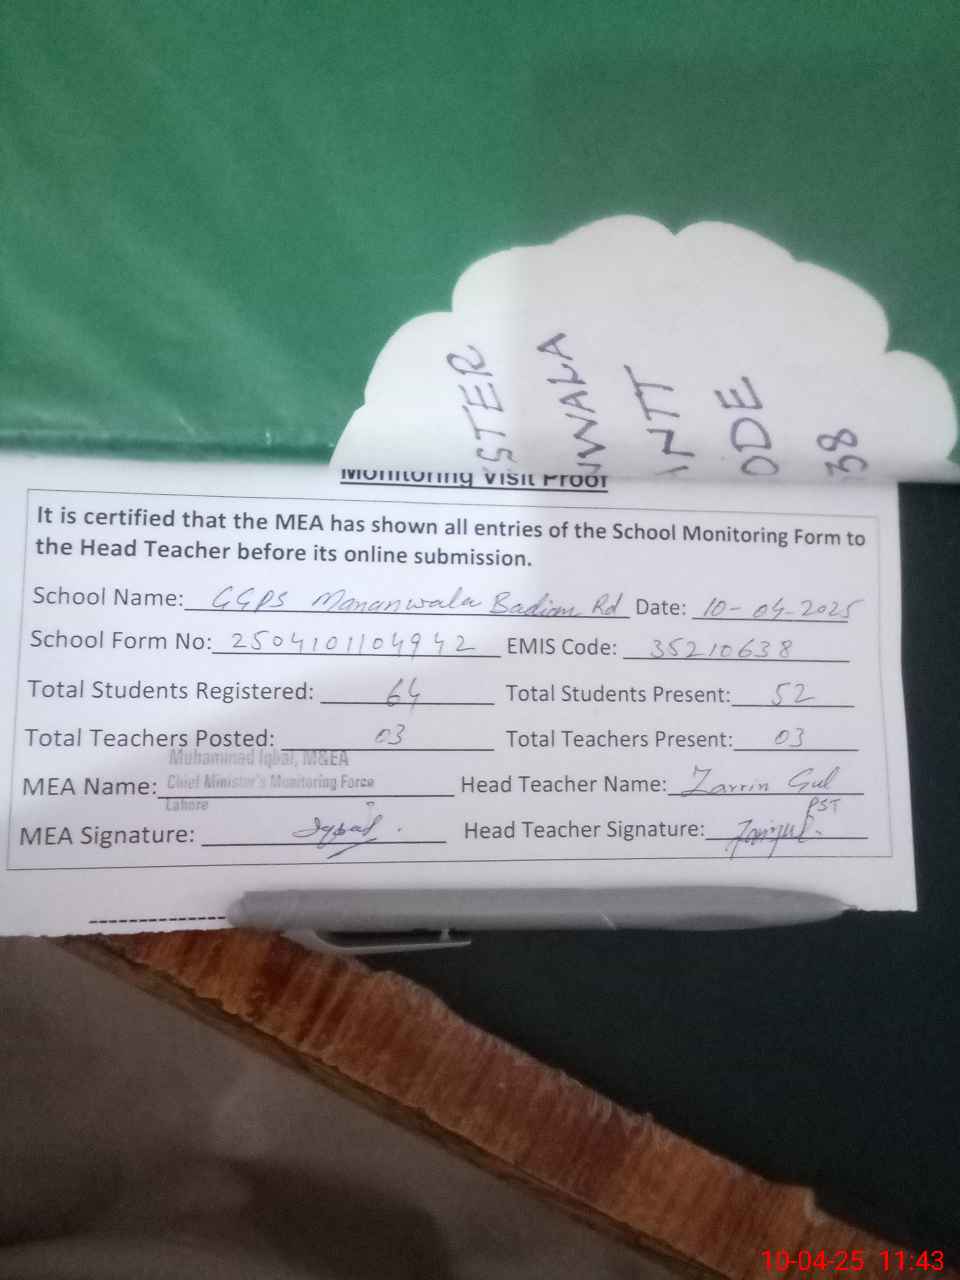 STER
WALA
NTT
ODE
38
Monitoring Visit Proof
It is certified that the MEA has shown all entries of the School Monitoring Form to
the Head Teacher before its online submission.
School Name: GGPS Mananwala Badian Rd Date: 10-04-2025
School Form No: 2504101104942 EMIS Code: 35210638
Total Students Registered: 64 Total Students Present: 52
Total Teachers Posted: 03 Total Teachers Present: 03
Muhammad Iqbal, M&EA
MEA Name: Chief Minister's Monitoring Force Head Teacher Name: Zarrin Gul
Lahore PST
MEA Signature: Iqbal. Head Teacher Signature:
10-04-25 11:43